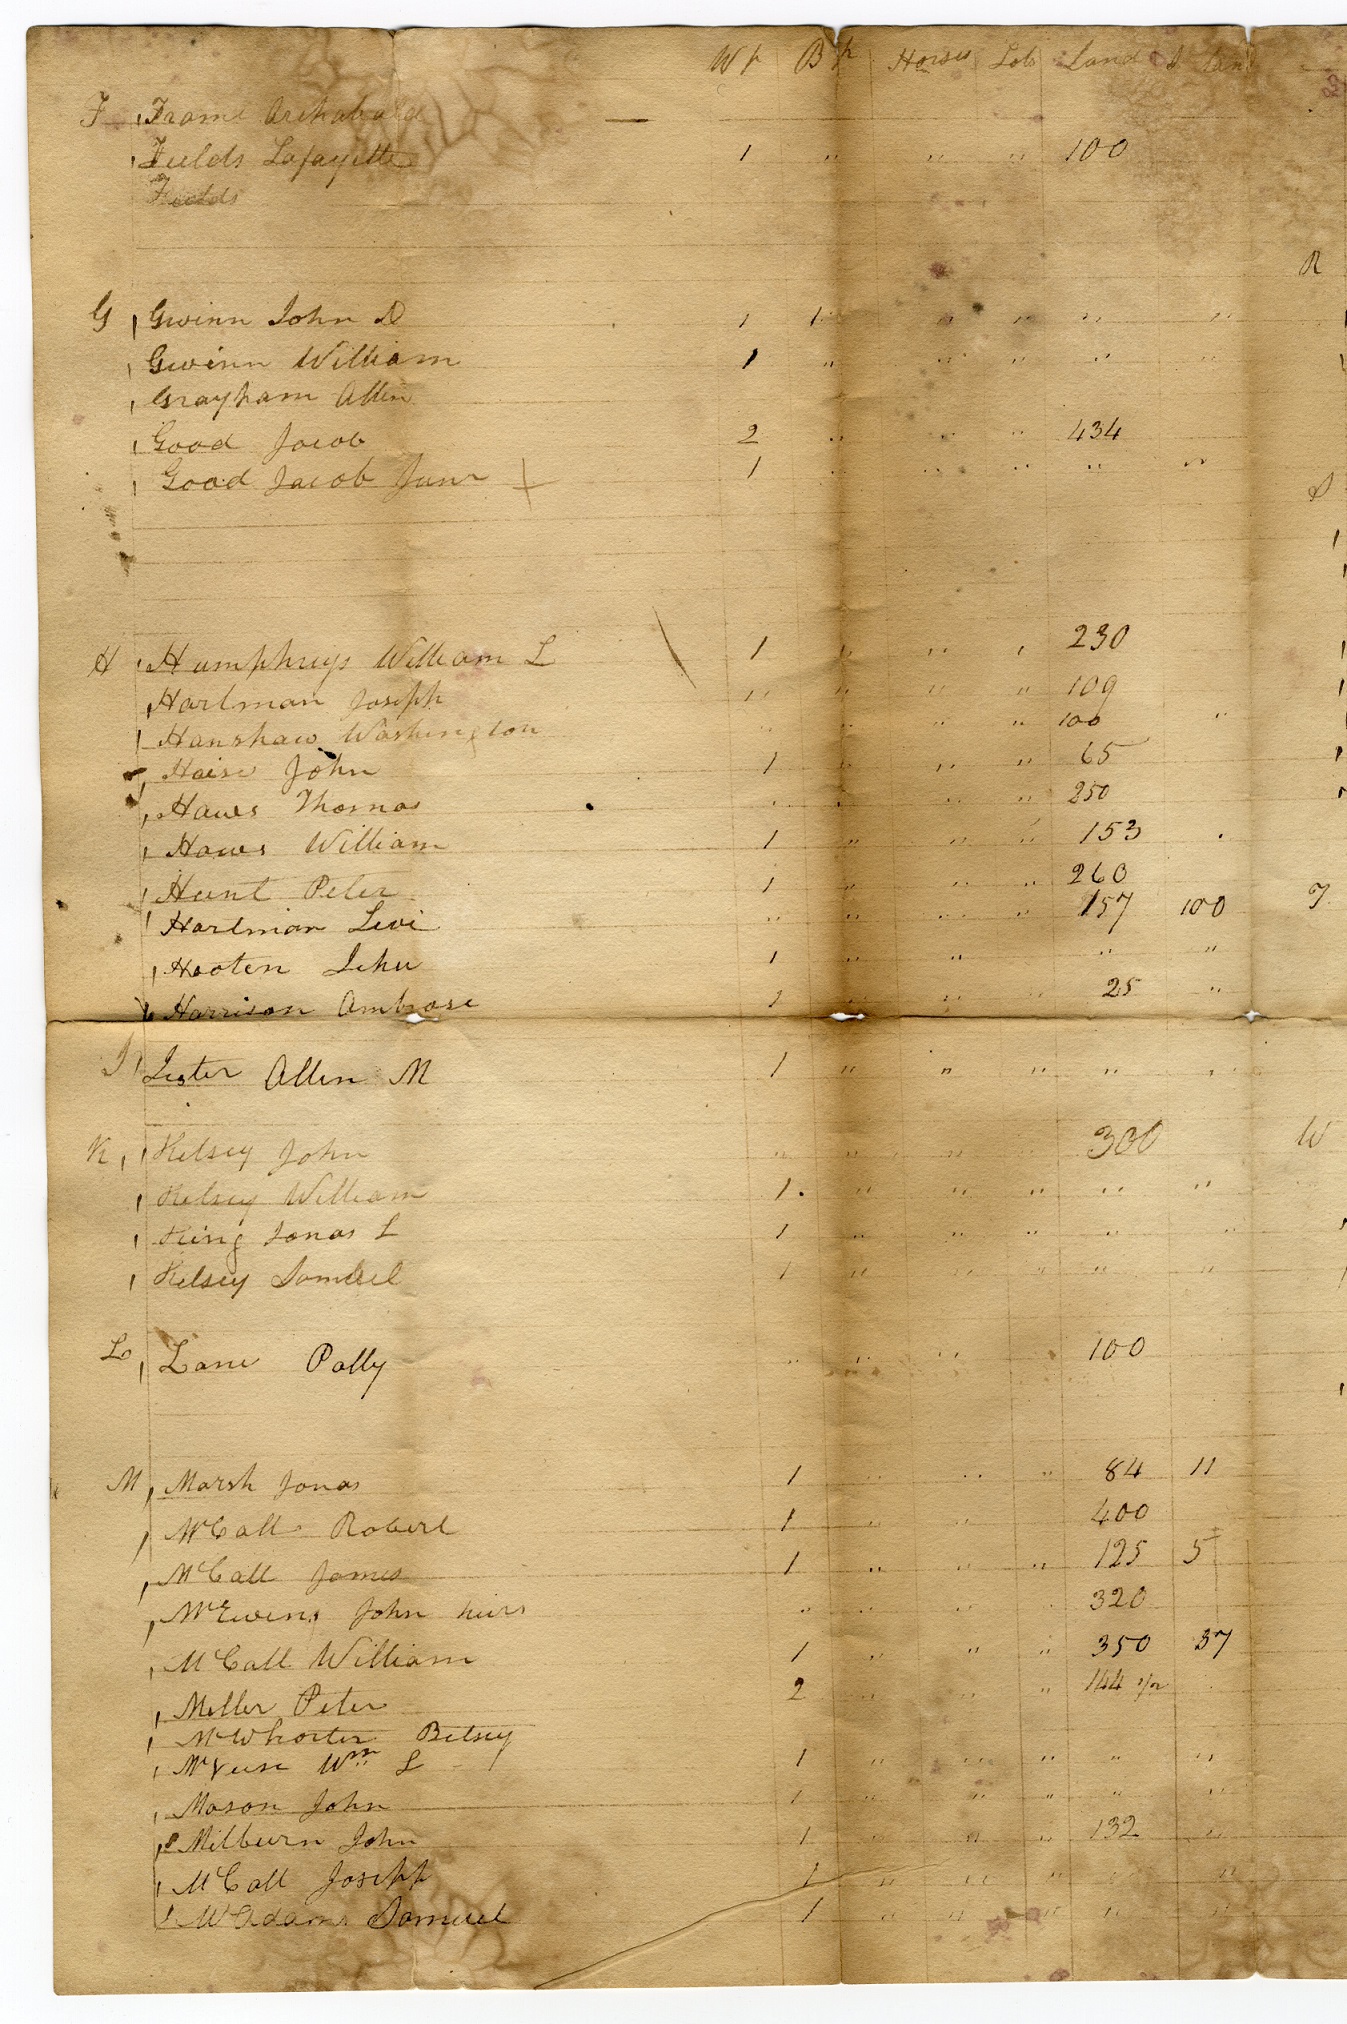 W p B p Horses Lots Land S Land
F Frame Archabald —
Fields Lafayette 1 " " " 100
Fields
R
G Gwinn John D 1 1 " " " "
Gwinn William 1 " " " " "
Grayham Allen
Good Jacob 2 " " " 434
Good Jacob Junr + 1 " " " " "
S
H Humphreys William L 1 " " " 230
Hartman Joseph " " " " 109
Hanshaw Washington " " " " 100 "
Haise John 1 " " 65
Hawes Thomas " " " " 250
Hawes William 1 " " " 153
Hunt Peter 1 " " " 260
Hartman Levi " " " " 157 100 T
Hooten Jehu 1 " " " "
Harrison Ambrose 1 " " " 25 "
J Jester Allen M 1 " " " " "
K Kelsey John " " " 300 W
Kelsey William 1 " " " " "
King Jonas L 1 " " " " "
Kelsey Samuel 1 " " " " "
L Lane Polly " " " 100
M Marsh Jonas 1 " " " 84 11
McCall Robert 1 " " 400
McCall James 1 " " " 125 5
McEwens John heirs " " " 320
McCall William 1 " " " 350 37
Meller Peter 2 " " " 144 1/2
McWhorter Betsey
Wm L 1 " " " " "
Mason John 1 " " " "
Milburn John 1 " " " 132 "
McCall Joseph 1 " " " "
McAdams Samuel 1 " " " " "